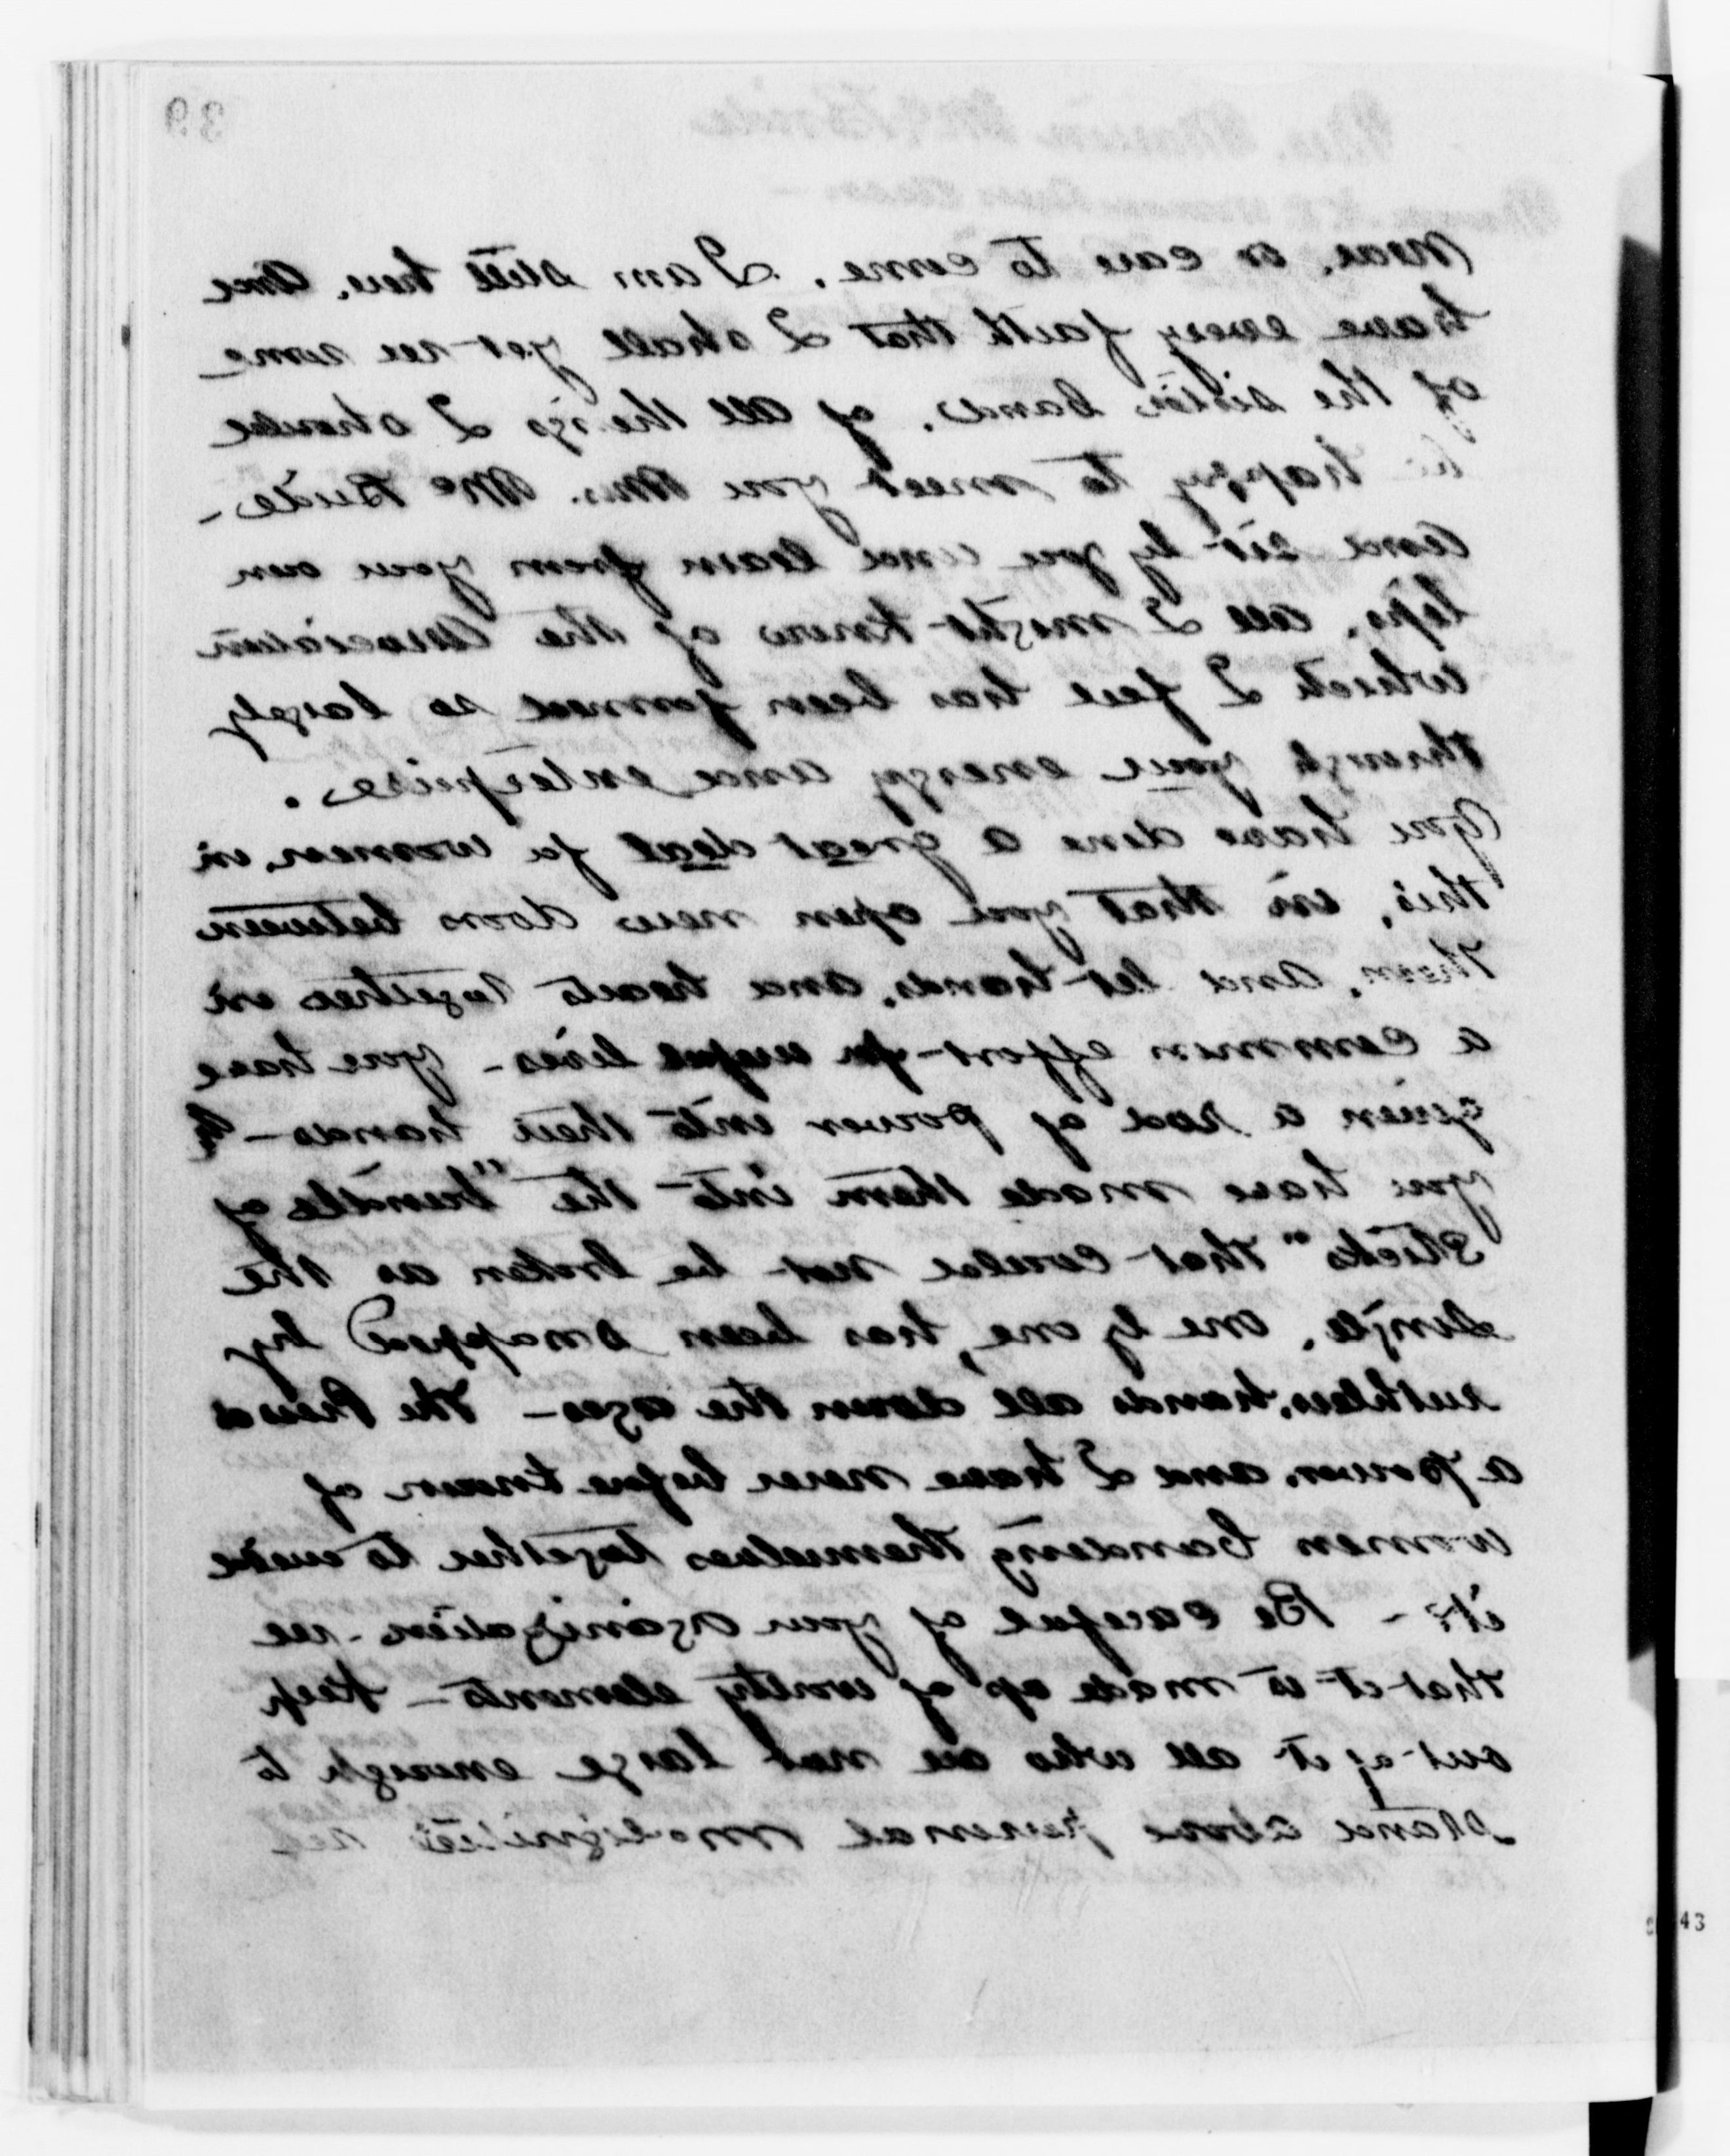 39
Mrs. Marion McBride
near, or care to come. I am still here. And
have every faith that I shall yet see some
of the sister bands. of all things I should
be happy to meet you Mrs. McBride -
and sit by you and learn from your own
lips, all I might know of the Association
which I feel has been formed so largely
through your energy and enterprise.
You have done a great deal for women in
this, in that you open new doors between
them, and let hands, and hearts together in
a common effort for useful lives - you have
given a rod of power into their hands - &
you have made them into the "bundle of
Sticks" that could not be broken as the
single, one by one, has been snapped by
ruthless hands all down the ages - The Press is
a power, and I have never before known of
women banding themselves together to wield
it - Be careful of your organization - see
that it is made up of worthy elements - Keep
out of it all who are not large enough to
stand above personal malignities and
43